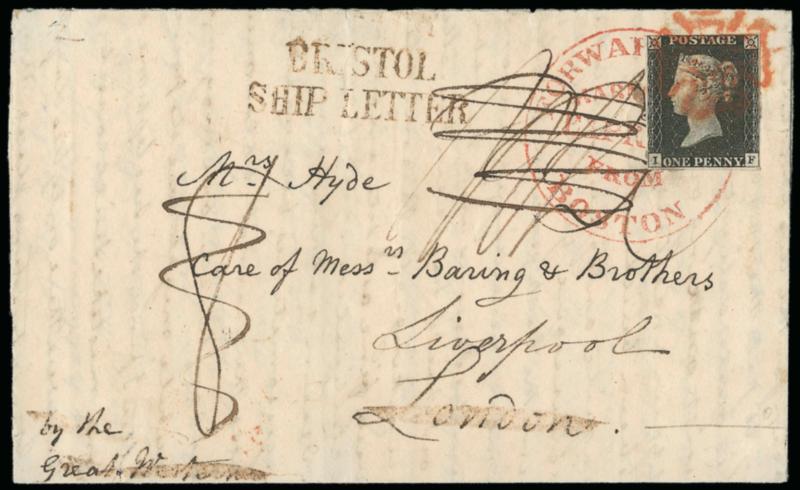 BRISTOL
SHIP LETTER
FORWAR
FROM
BOSTON
POSTAGE
I ONE PENNY F
Mrs Hyde
Care of Messrs Baring & Brothers
Liverpool
London.
by the
Great Western